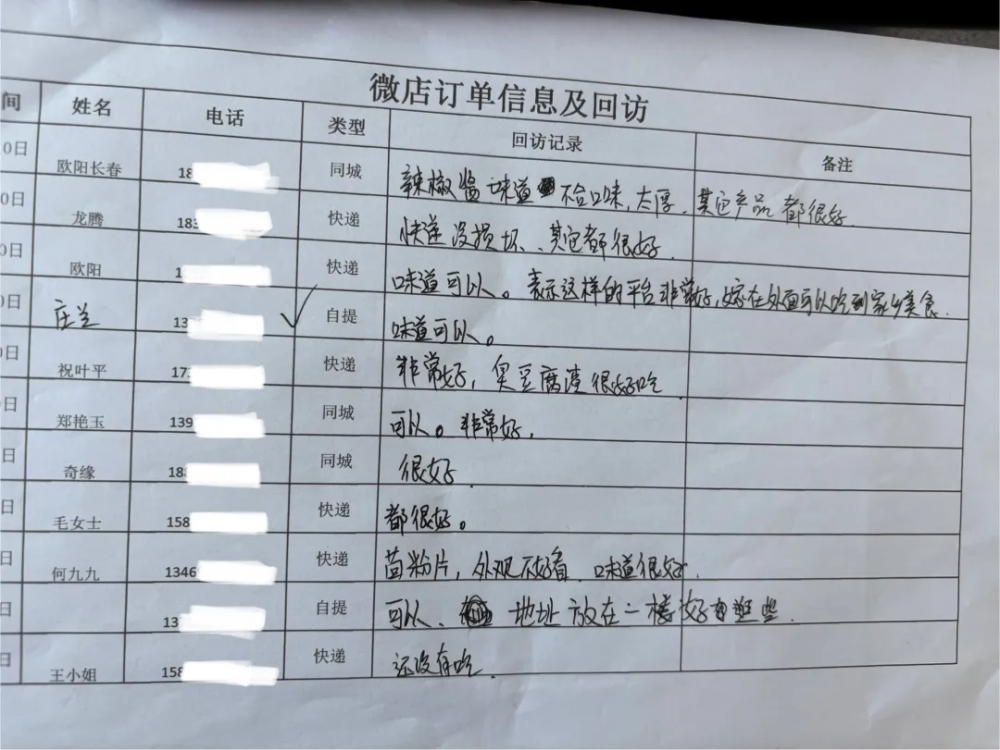 微店订单信息及回访
间 姓名 电话 类型 回访记录 备注
0日 欧阳长春 18 同城 辣椒酱味道不合口味,太厚、其它产品都很好
0日 龙腾 183 快递 快递没损坏、其它都很好
0日 欧阳 1 快递 味道可以。表示这样的平台非常好,在外面可以吃到家乡美食
0日 庄兰 13 自提 味道可以。
0日 祝叶平 17 快递 非常好,臭豆腐渣很好吃
日 郑艳玉 139 同城 可以。非常好,
日 奇缘 18 同城 很好
日 毛女士 158 快递 都很好。
日 何九九 1346 快递 粉片,外观不好看、味道很好.
日 13 自提 可以、地址放在一楼好些.
日 王小姐 158 快递 还没有吃.